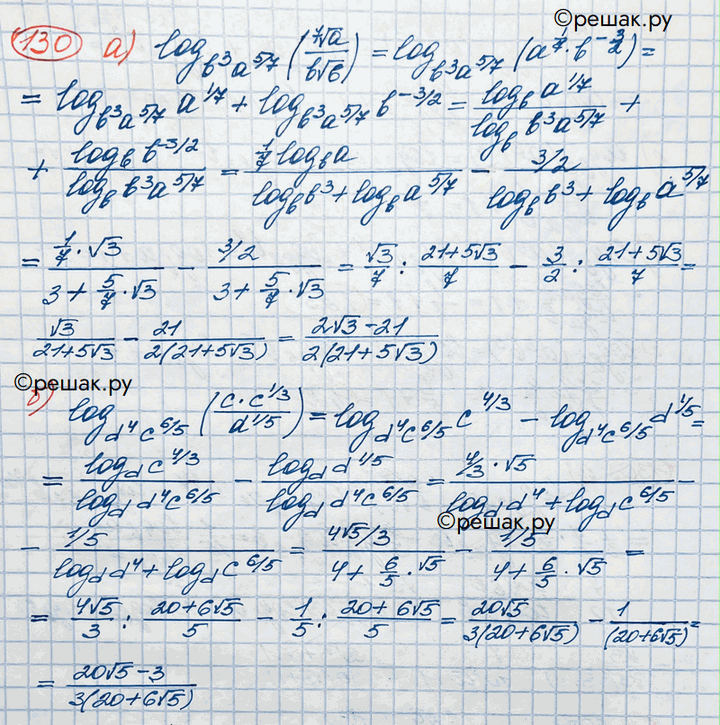 ©решак.ру
130 а) log_{b³a^{5/7}} (⁷√a / b√b) = log_{b³a^{5/7}} (a^{1/7} · b^{-3/2}) =
= log_{b³a^{5/7}} a^{1/7} + log_{b³a^{5/7}} b^{-3/2} = log_b a^{1/7} / log_b b³a^{5/7} +
+ log_b b^{-3/2} / log_b b³a^{5/7} = 1/7 log_b a / (log_b b³ + log_b a^{5/7}) − 3/2 / (log_b b³ + log_b a^{5/7})
= (1/7 · √3) / (3 + 5/7 · √3) − 3/2 / (3 + 5/7 · √3) = √3/7 : (21+5√3)/7 − 3/2 : (21+5√3)/7 =
√3 / (21+5√3) − 21 / 2(21+5√3) = (2√3 − 21) / 2(21+5√3)
©решак.ру
б) log_{d⁴c^{6/5}} (c · c^{1/3} / d^{1/5}) = log_{d⁴c^{6/5}} c^{4/3} − log_{d⁴c^{6/5}} d^{1/5} =
= log_d c^{4/3} / log_d d⁴c^{6/5} − log_d d^{1/5} / log_d d⁴c^{6/5} = (4/3 · √5) / (log_d d⁴ + log_d c^{6/5}) −
©решак.ру
− 1/5 / (log_d d⁴ + log_d c^{6/5}) = (4√5/3) / (4 + 6/5 · √5) − 1/5 / (4 + 6/5 · √5) =
= 4√5/3 : (20+6√5)/5 − 1/5 : (20+6√5)/5 = 20√5 / 3(20+6√5) − 1 / (20+6√5) =
= (20√5 − 3) / 3(20+6√5)